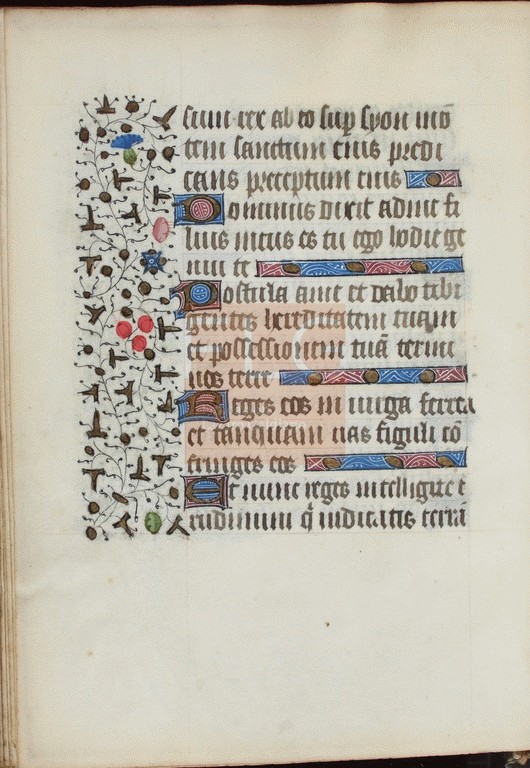 sum rex ab eo sup syon mō
tem sanctum eius predi
cans preceptum eius
Dominus dixit ad me fi
lius meus es tu ego hodie ge
nui te
Postula a me et dabo tibi
gentes hereditatem tuam
et possessionem tuā termi
nos terre
Reges eos in uirga ferrea
et tanquam uas figuli cō
fringes eos
Et nunc reges intelligite e
rudimini q̄ iudicatis terrā